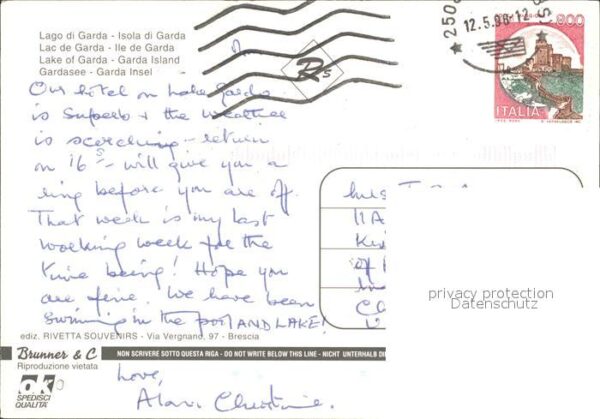 Lago di Garda - Isola di Garda
Lac de Garda - Ile de Garda
Lake of Garda - Garda Island
Gardasee - Garda Insel
Our hotel on Lake Garda
is superb & the weather
is scorching - return
on 16 - will give you a
ring before you are off.
That week is my last
working week for the
time being! Hope you
are fine. We have been
swimming in the pool AND LAKE!
Love,
Alan, Christine.
ediz. RIVETTA SOUVENIRS - Via Vergnano, 97 - Brescia
Brunner & C
Riproduzione vietata
NON SCRIVERE SOTTO QUESTA RIGA - DO NOT WRITE BELOW THIS LINE - NICHT UNTERHALB
ok
SPEDISCI
QUALITA'
RS
12.5.98-12
800
ITALIA
11A
privacy protection
Datenschutz